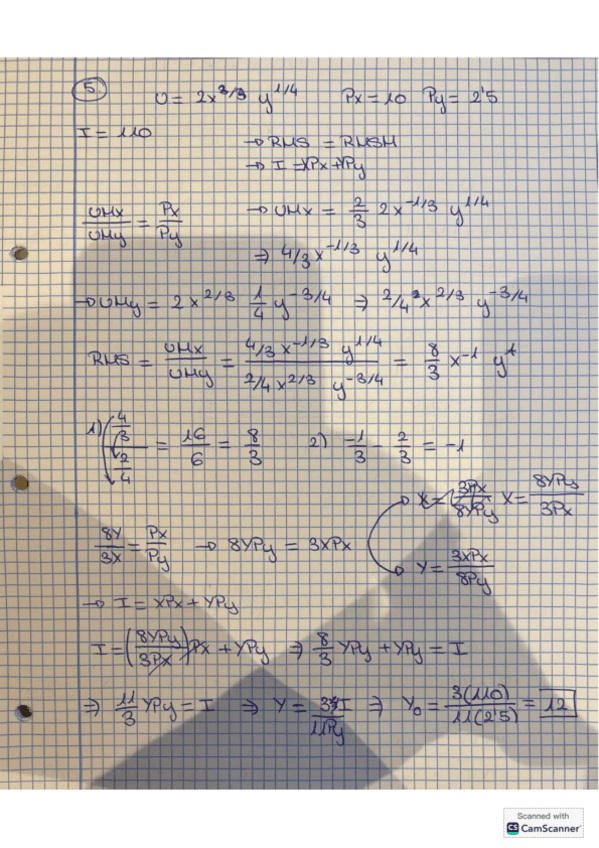 5) U = 2x^2/3 y^1/4 Px = 10 Py = 2'5
I = 110 → RMS = RMSM
→ I = XPx + YPy
UMx/UMy = Px/Py → UMx = 2/3 2x^-1/3 y^1/4
⇒ 4/3 x^-1/3 y^1/4
→ UMy = 2x^2/3 1/4 y^-3/4 ⇒ 2/4 x^2/3 y^-3/4
RMS = UMx/UMy = 4/3 x^-1/3 y^1/4 / 2/4 x^2/3 y^-3/4 = 8/3 x^-1 y^1
1) 4/3 / 2/4 = 16/6 = 8/3 2) -1/3 - 2/3 = -1
→ X = 3Px/8YPy X = 8YPy/3Px
8Y/3X = Px/Py → 8YPy = 3XPx
→ Y = 3XPx/8Py
→ I = XPx + YPy
I = (8YPy/3Px)Px + YPy ⇒ 8/3 YPy + YPy = I
⇒ 11/3 YPy = I ⇒ Y = 3I/11Py ⇒ Y₀ = 3(110)/11(2'5) = 12
Scanned with
CS CamScanner